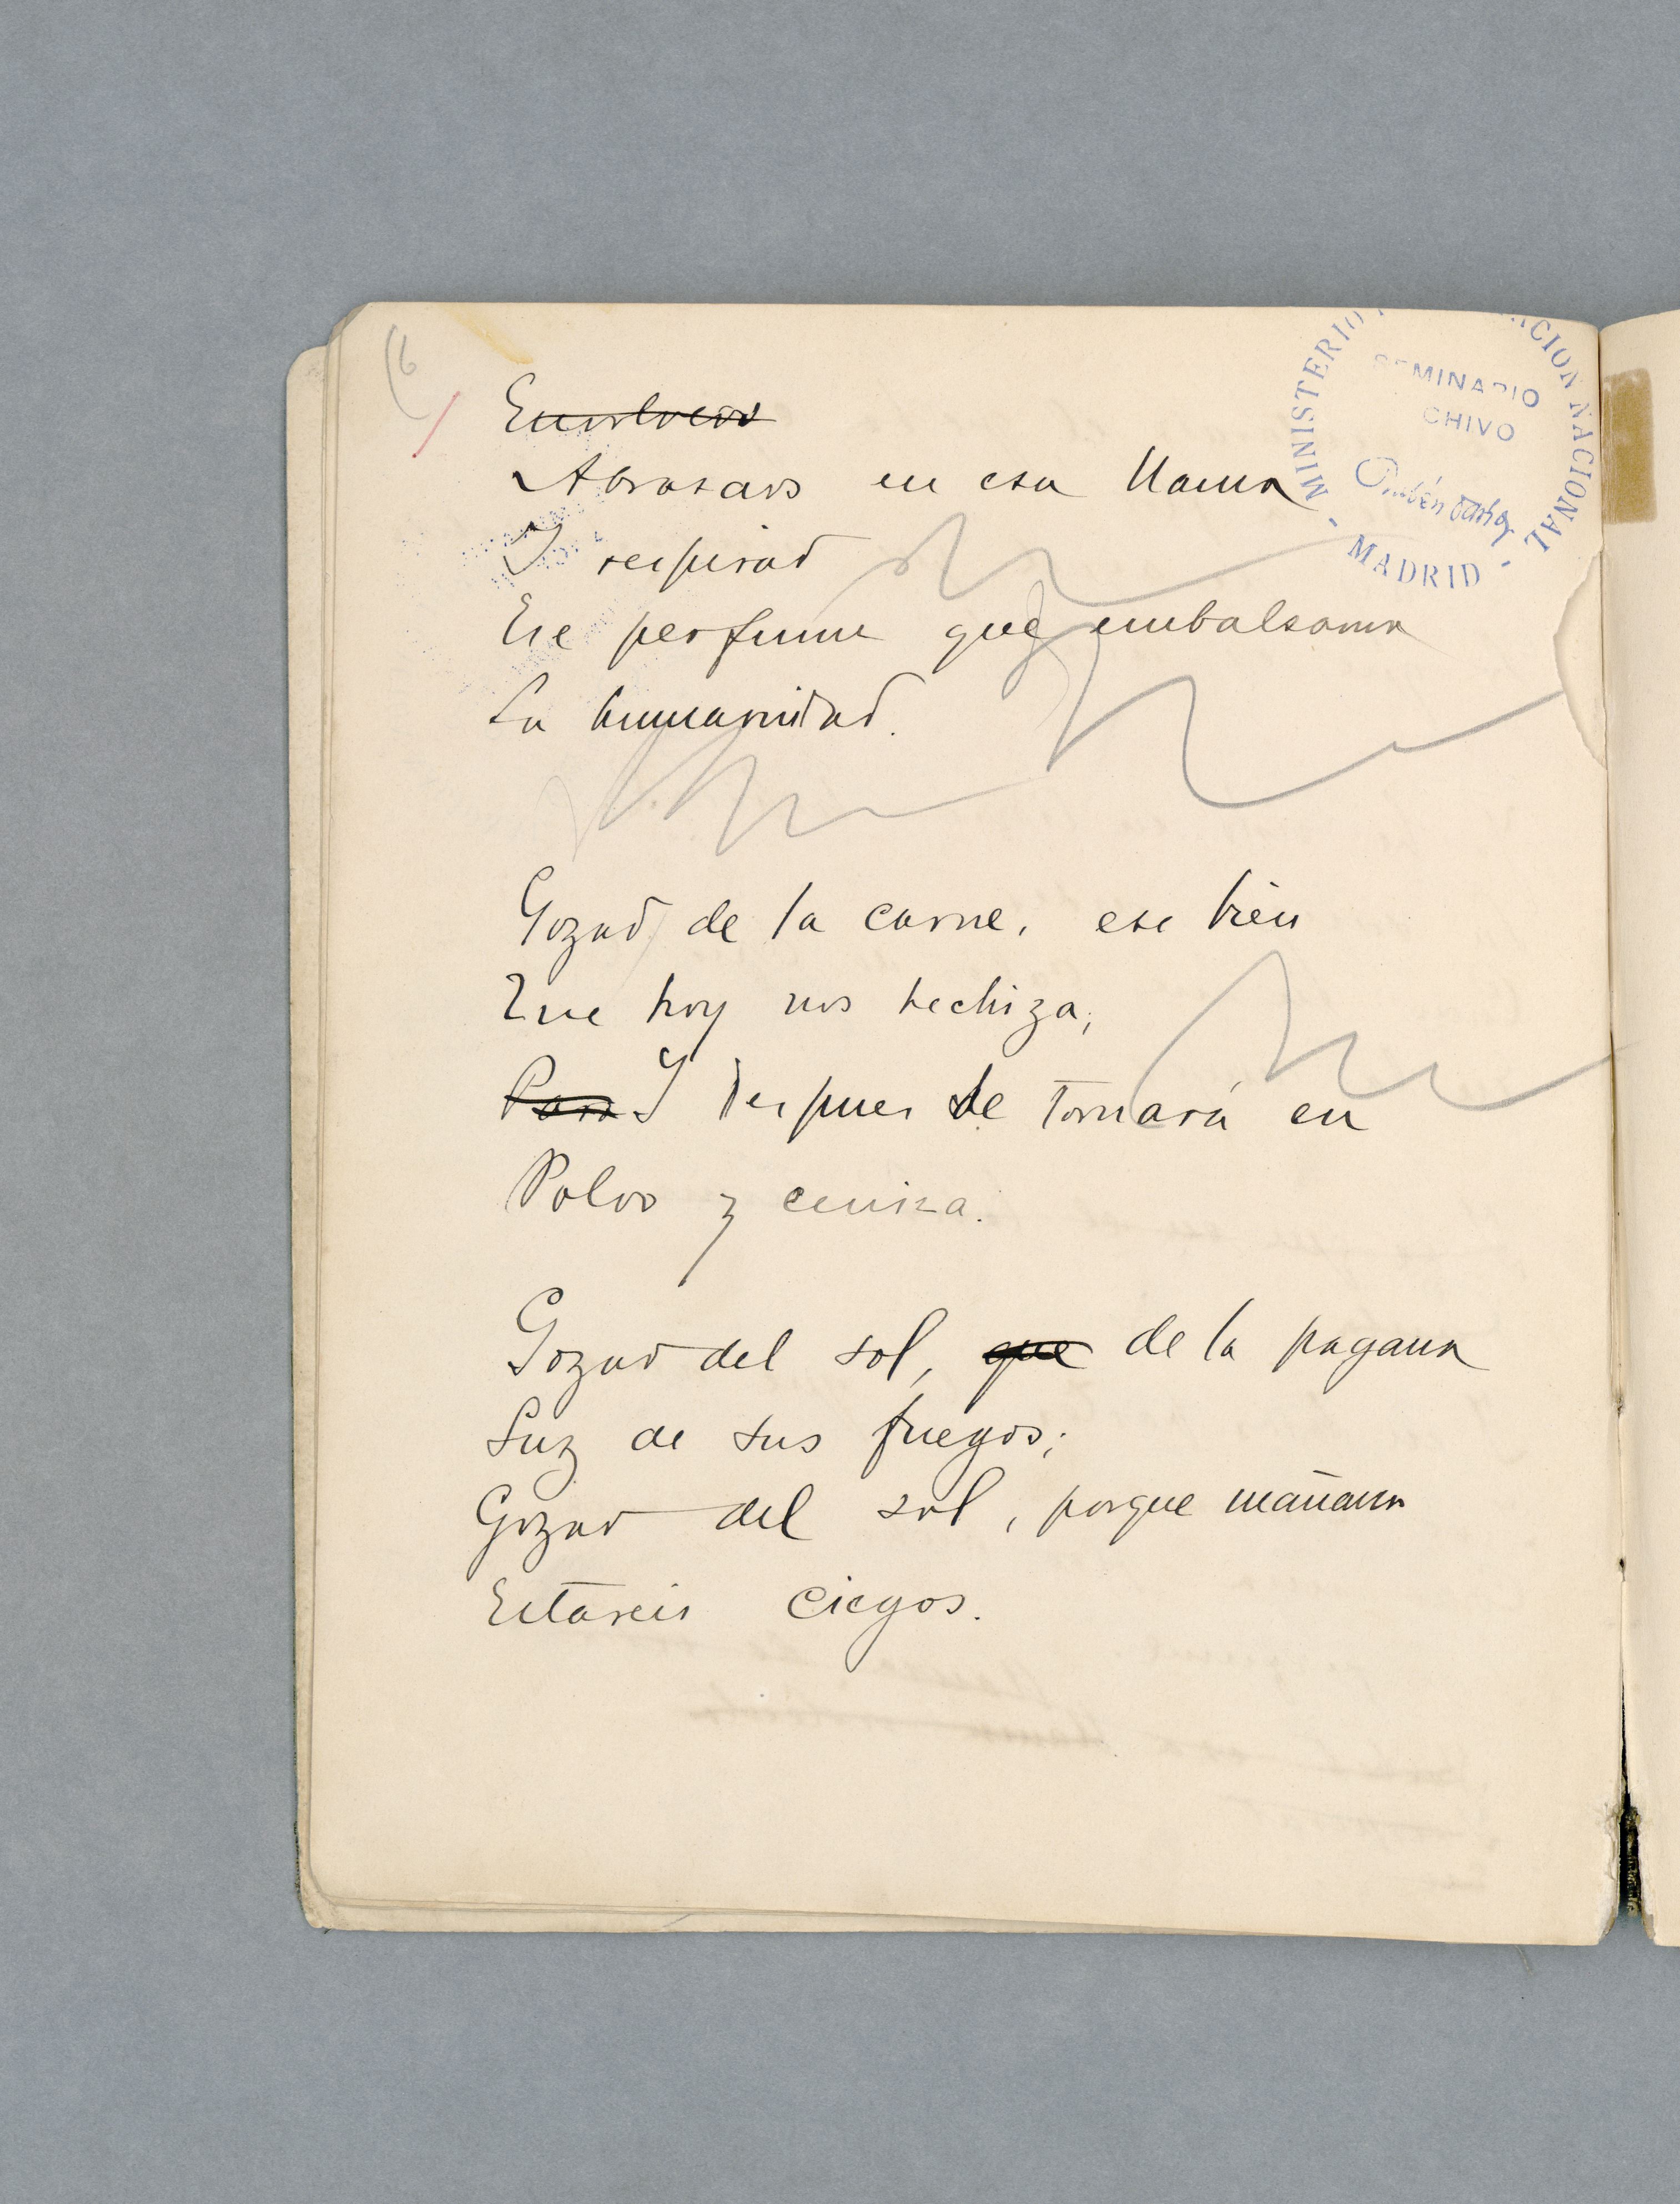 6
Envolveos
Abrasaos en esa llama
Y respirad
Ese perfume que embalsama
La humanidad.
Gozad de la carne, ese bien
Que hoy nos hechiza,
Para Y despues se tornará en
Polvo y ceniza.
Gozad del sol, que de la pagana
Luz de sus fuegos;
Gozad del sol, porque mañana
Estareis ciegos.
MINISTERIO CION NACIONAL
SEMINARIO
CHIVO
Rubén Darío
- MADRID -